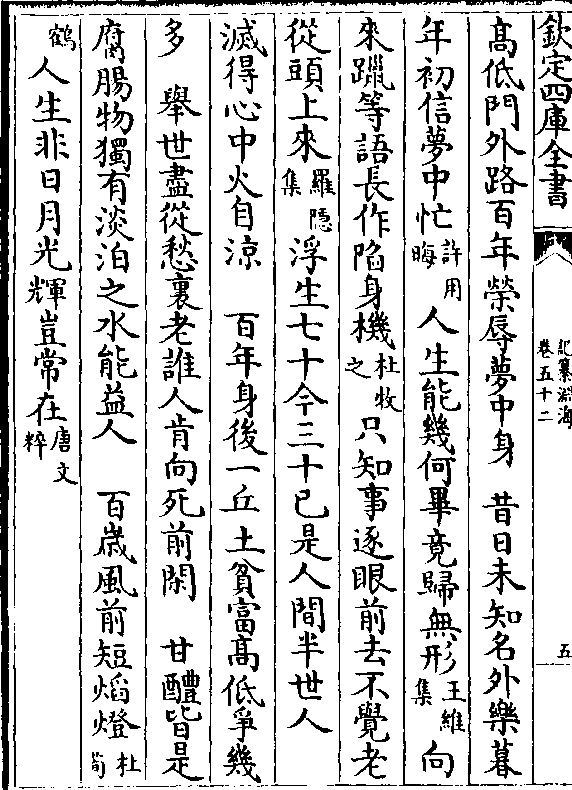 欽定四庫全書
記纂淵海
卷五十二
五
高低門外路百年榮辱夢中身　昔日未知名外樂暮
年初信夢中忙許用晦　人生能幾何畢竟歸無形王維集　向
來躐等語長作陷身機杜牧之　只知事逐眼前去不覺老
從頭上來羅隱集　浮生七十今三十已是人間半世人
滅得心中火自涼　百年身後一丘土貧富高低爭幾
多　舉世盡從愁裏老誰人肯向死前閑　甘醴皆是
腐腸物獨有淡泊之水能益人　百歲風前短焰燈杜荀
鶴　人生非日月光輝豈常在唐文粹